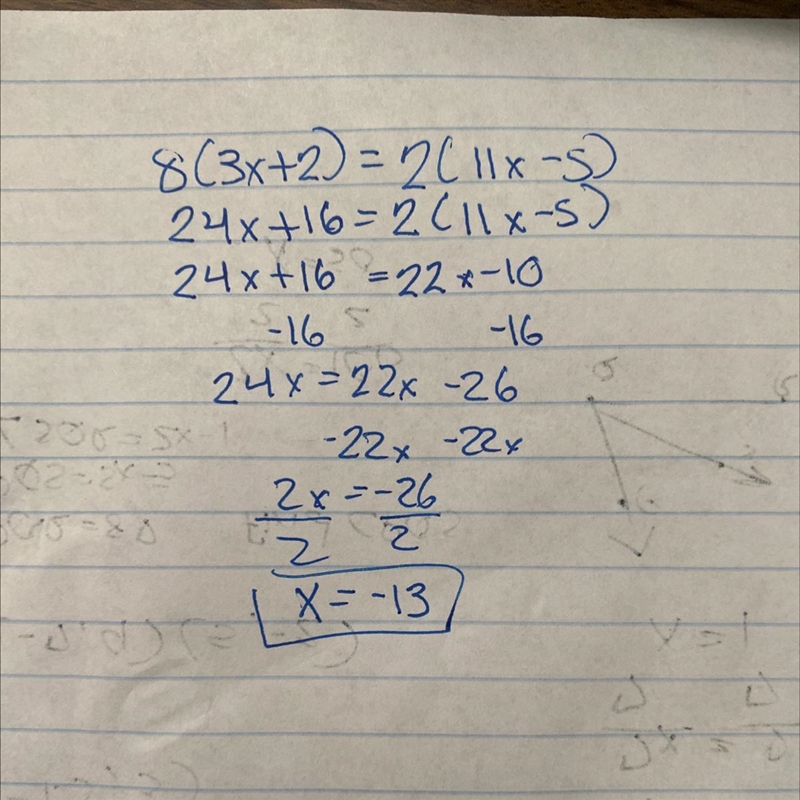 8(3x+2) = 2(11x-5)
24x+16 = 2(11x-5)
24x+16 = 22x-10
-16 -16
24x = 22x -26
-22x -22x
2x = -26
2 2
x = -13